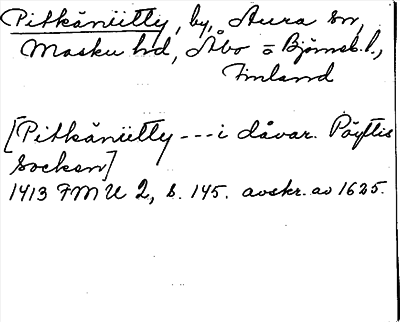 Pitkäniitty, by, Aura sn,
Masku hd, Åbo o Björneb. l.,
Finland
[Pitkäniitty --- i dåvar. Pöytis
Socken]
1413 FMU 2, s. 145. avskr. av 1625.